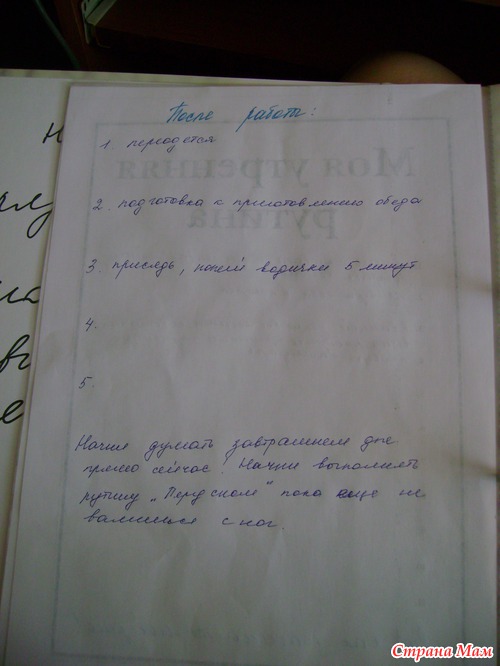 После работы:
1. переодется
2. подготовка к приготовлению обеда
3. присядь, попей водички 5 минут
4.
5.
Начни думать завтрашнем дне
прямо сейчас! Начни выполнять
рутину „Перед сном" пока еще не
валишься с ног.
Моя утренняя
рутина
Страна Мам